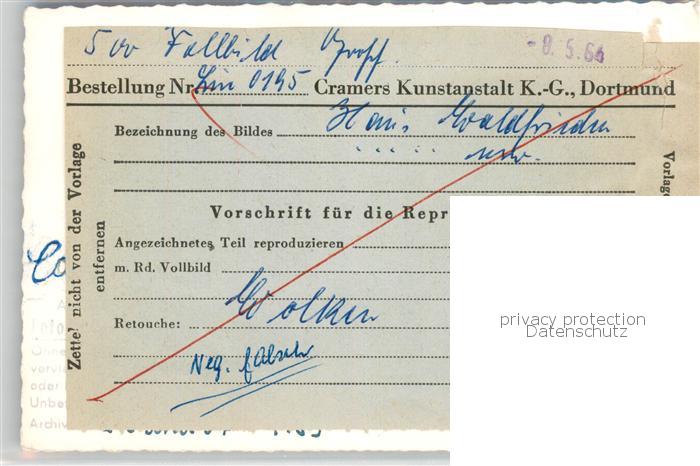 500 Vollbild
- 9. 5. 66
Bestellung Nr. Lün 0195 Cramers Kunstanstalt K.-G., Dortmund
Bezeichnung des Bildes Haus Waldfrieden
usw.
Vorschrift für die Repr
Angezeichnetes Teil reproduzieren
m. Rd. Vollbild
Retouche: Wolken
Neg. falsch
Zettel nicht von der Vorlage
entfernen
Vorlage
privacy protection
Datenschutz
Ohne
oder
Unbe
Archiv